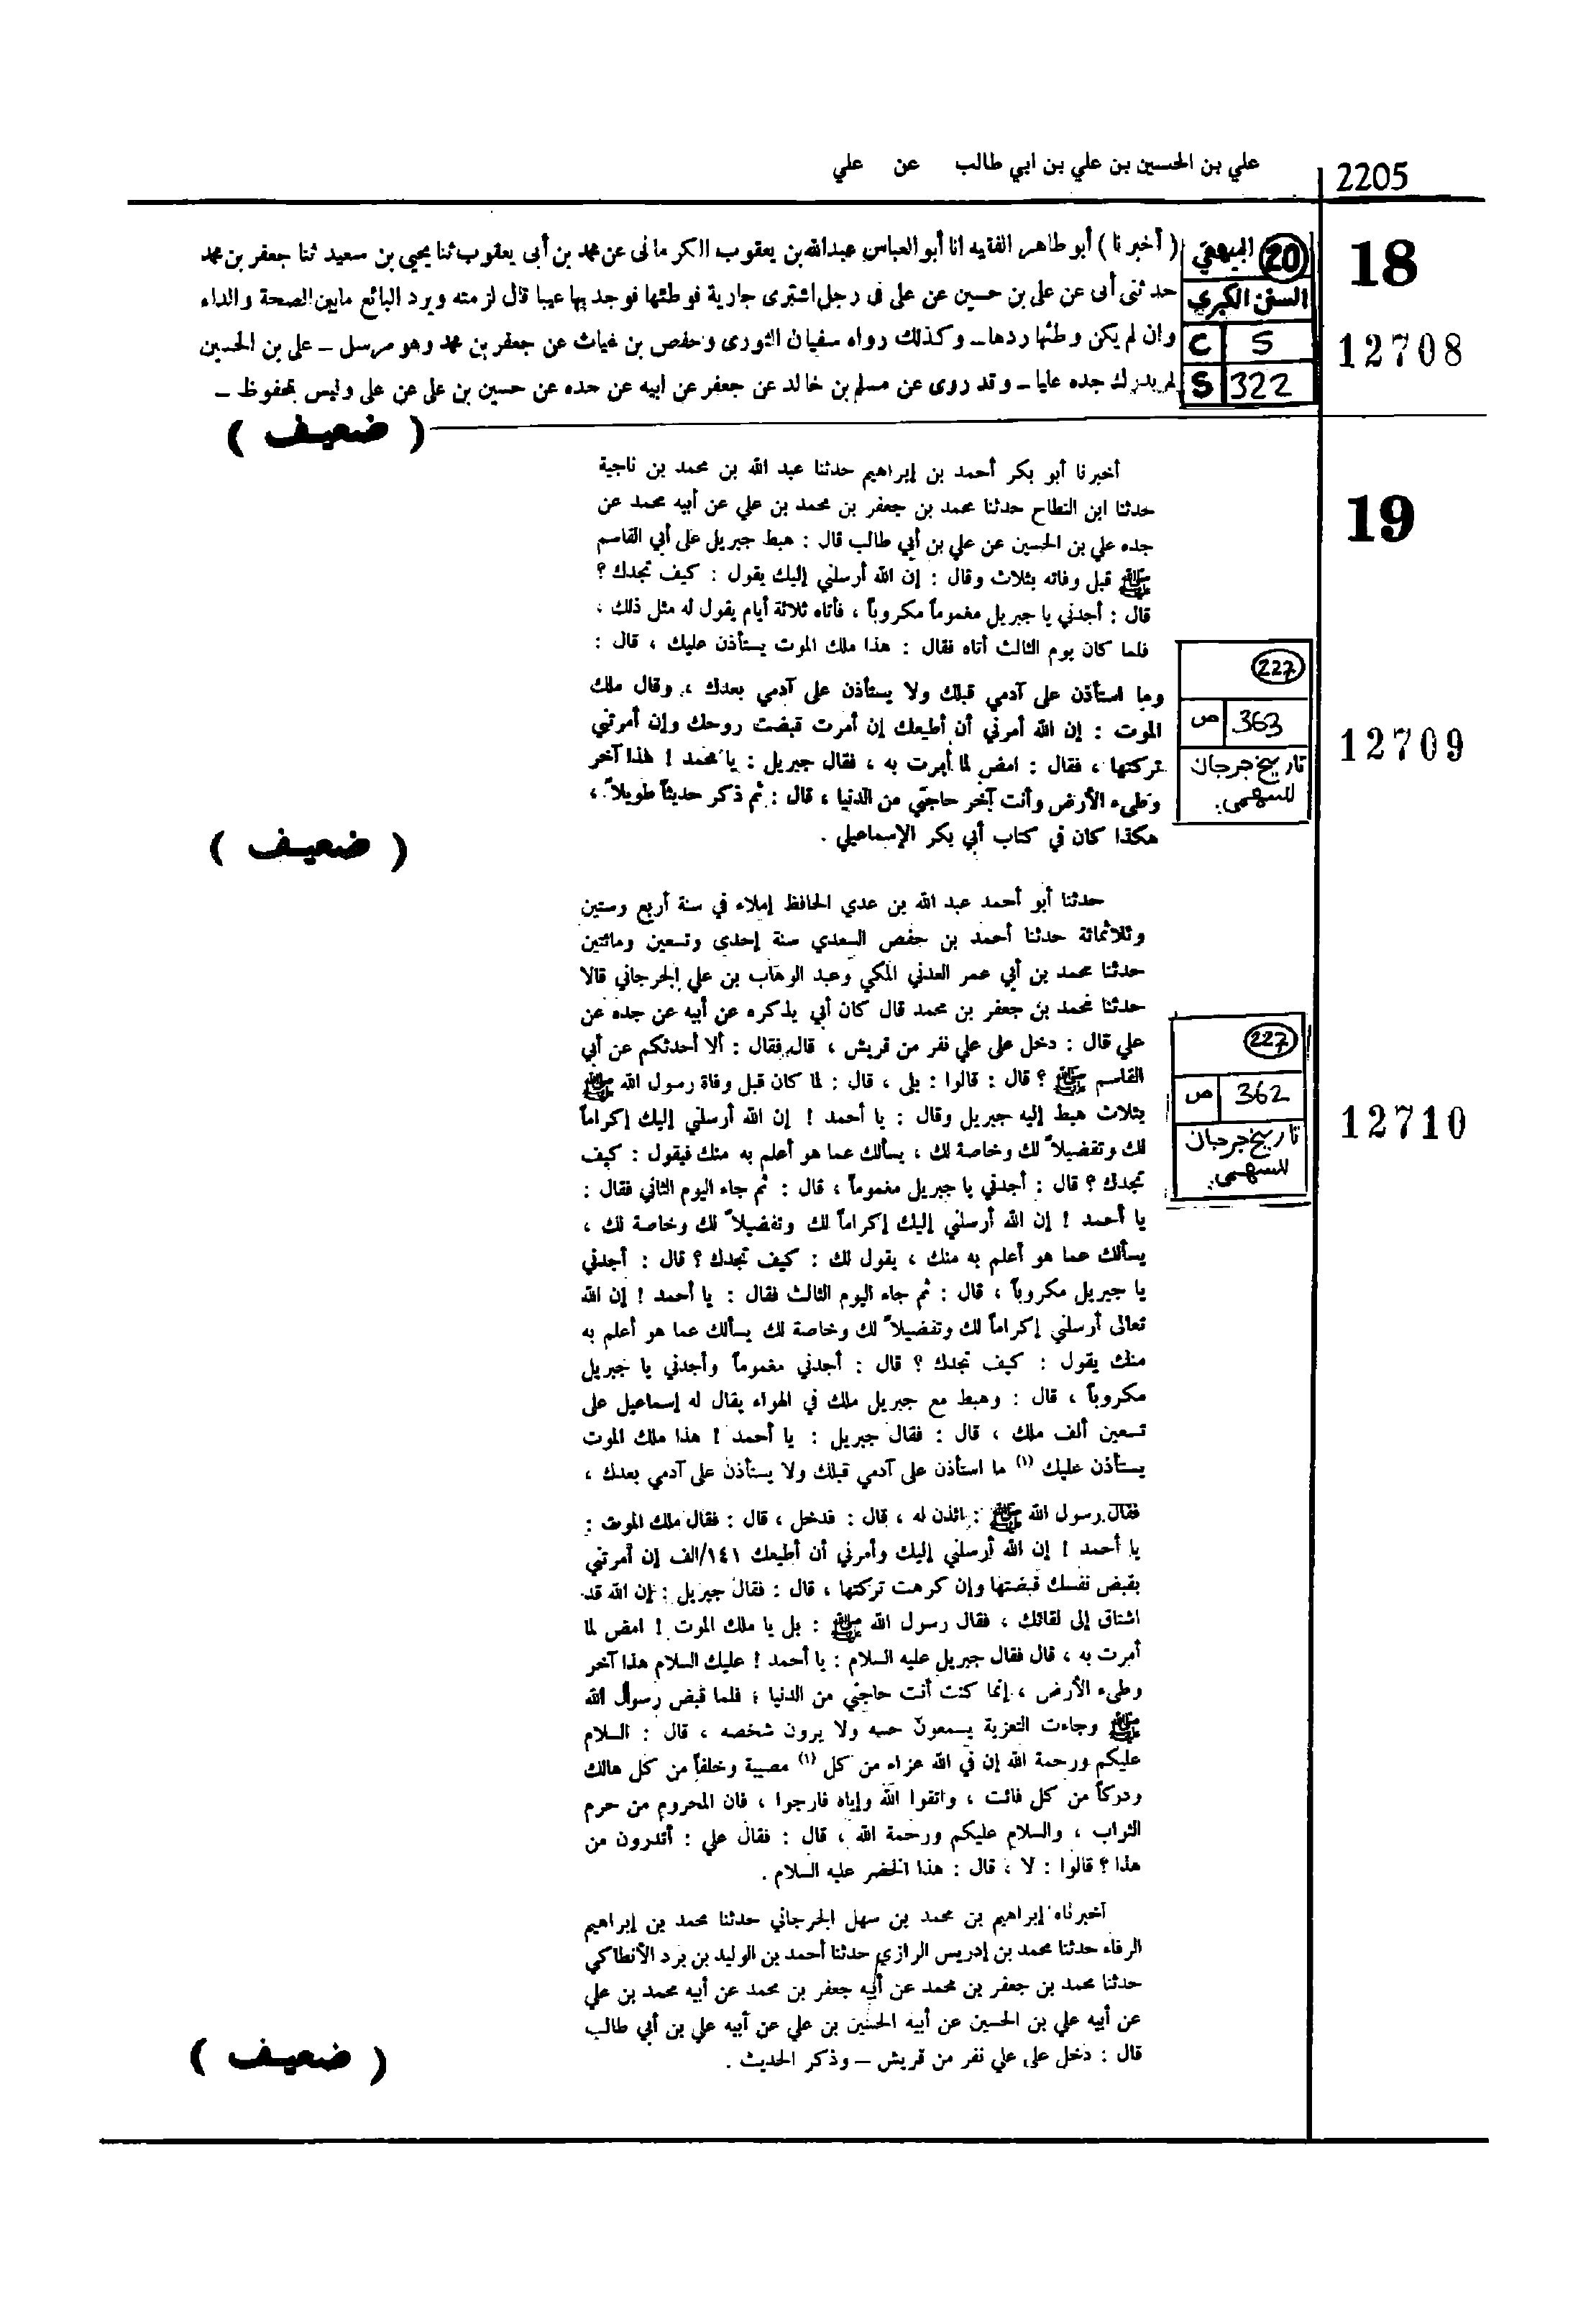 علي بن الحسين بن علي بن ابي طالب عن علي
2205
18
12708
20 البيهقي
السنن الكبرى
C 5
S 322
( أخبرنا ) أبو طاهر الفقيه انا أبو العباس عبدالله بن يعقوب الكرمانى عن محمد بن أبى يعقوب ثنا يحيى بن سعيد ثنا جعفر بن محمد
حدثنى أبى عن على بن حسين عن على فى رجل اشترى جارية فوطئها فوجد بها عيبا قال لزمته ويرد البائع مابين الصحة والداء
وان لم يكن وطئها ردها ــ وكذلك رواه سفيان الثورى وحفص بن غياث عن جعفر بن محمد وهو مرسل ــ على بن الحسين
لم يدرك جده عليا ــ وقد روى عن مسلم بن خالد عن جعفر عن ابيه عن جده عن حسين بن على عن على وليس بمحفوظ ــ
( ضعيف )
19
12709
227
ص 363
تاريخ جرجان
للسهمي.
أخبرنا أبو بكر أحمد بن إبراهيم حدثنا عبد الله بن محمد بن ناجية
حدثنا ابن النطاح حدثنا محمد بن جعفر بن محمد بن علي عن أبيه محمد عن
جده علي بن الحسين عن علي بن أبي طالب قال : هبط جبريل على أبي القاسم
ﷺ قبل وفاته بثلاث وقال : إن الله أرسلني إليك يقول : كيف تجدك ؟
قال : أجدني يا جبريل مغموماً مكروباً ، فأتاه ثلاثة أيام يقول له مثل ذلك ،
فلما كان يوم الثالث أتاه فقال : هذا ملك الموت يستأذن عليك ، قال :
وما استأذن على آدمي قبلك ولا يستأذن على آدمي بعدك ، وقال ملك
الموت : إن الله أمرني أن أطيعك إن أمرت قبضت روحك وإن أمرتني
تركتها ، فقال : امض لما أمرت به ، فقال جبريل : يا محمد ! هذا آخر
وطيء الأرض وأنت آخر حاجتي من الدنيا ، قال : ثم ذكر حديثاً طويلاً ،
هكذا كان في كتاب أبي بكر الإسماعيلي .
( ضعيف )
12710
227
ص 362
تاريخ جرجان
للسهمي.
حدثنا أبو أحمد عبد الله بن عدي الحافظ إملاء في سنة أربع وستين
وثلاثمائة حدثنا أحمد بن حفص السعدي سنة إحدى وتسعين ومائتين
حدثنا محمد بن أبي عمر العدني المكي وعبد الوهاب بن علي الجرجاني قالا
حدثنا محمد بن جعفر بن محمد قال كان أبي يذكره عن أبيه عن جده عن
علي قال : دخل على علي نفر من قريش ، قال فقال : ألا أحدثكم عن أبي
القاسم ﷺ ؟ قال : قالوا : بلى ، قال : لما كان قبل وفاة رسول الله ﷺ
بثلاث هبط إليه جبريل وقال : يا أحمد ! إن الله أرسلني إليك إكراماً
لك وتفضيلاً لك وخاصة لك ، يسألك عما هو أعلم به منك فيقول : كيف
تجدك ؟ قال : أجدني يا جبريل مغموماً ، قال : ثم جاء اليوم الثاني فقال :
يا أحمد ! إن الله أرسلني إليك إكراماً لك وتفضيلاً لك وخاصة لك ،
يسألك عما هو أعلم به منك ، يقول لك : كيف تجدك ؟ قال : أجدني
يا جبريل مكروباً ، قال : ثم جاء اليوم الثالث فقال : يا أحمد ! إن الله
تعالى أرسلني إكراماً لك وتفضيلاً لك وخاصة لك يسألك عما هو أعلم به
منك يقول : كيف تجدك ؟ قال : أجدني مغموماً وأجدني يا جبريل
مكروباً ، قال : وهبط مع جبريل ملك في الهواء يقال له إسماعيل على
تسعين ألف ملك ، قال : فقال جبريل : يا أحمد ! هذا ملك الموت
يستأذن عليك (١) ما استأذن على آدمي قبلك ولا يستأذن على آدمي بعدك ،
فقال رسول الله ﷺ : ائذن له ، قال : فدخل ، قال : فقال ملك الموت :
يا أحمد ! إن الله أرسلني إليك وأمرني أن أطيعك ١٤١/الف إن أمرتني
بقبض نفسك قبضتها وإن كرهت تركتها ، قال : فقال جبريل : إن الله قد
اشتاق إلى لقائك ، فقال رسول الله ﷺ : بل يا ملك الموت ! امض لما
أمرت به ، قال فقال جبريل عليه السلام : يا أحمد ! عليك السلام هذا آخر
وطيء الأرض ، إنما كنت أنت حاجتي من الدنيا ؛ فلما قبض رسول الله
ﷺ وجاءت التعزية يسمعون حسه ولا يرون شخصه ، قال : السلام
عليكم ورحمة الله إن في الله عزاء من كل (١) مصيبة وخلفاً من كل هالك
ودركاً من كل فائت ، واتقوا الله وإياه فارجوا ، فان المحروم من حرم
الثواب ، والسلام عليكم ورحمة الله ، قال : فقال علي : أتدرون من
هذا ؟ قالوا : لا ، قال : هذا الخضر عليه السلام .
أخبرناه إبراهيم بن محمد بن سهل الجرجاني حدثنا محمد بن إبراهيم
الرفاء حدثنا محمد بن إدريس الرازي حدثنا أحمد بن الوليد بن برد الأنطاكي
حدثنا محمد بن جعفر بن محمد عن أبيه جعفر بن محمد عن أبيه محمد بن علي
عن أبيه علي بن الحسين عن أبيه الحسين بن علي عن أبيه علي بن أبي طالب
قال : دخل على علي نفر من قريش ــ وذكر الحديث .
( ضعيف )